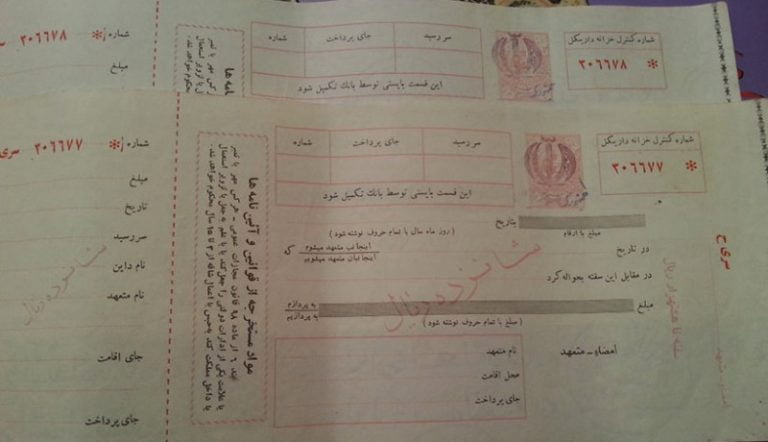 شماره * ۳۰۶۶۷۸
مبلغ
شماره
جای پرداخت
سررسید
این قسمت بایستی توسط بانک تکمیل شود
شماره کنترل خزانه داری کل
* ۳۰۶۶۷۸
شماره * ۳۰۶۶۷۷ سری
مبلغ
تاریخ
سررسید
نام داین
نام متعهد
جای اقامت
جای پرداخت
شانزده ریال
مواد مستخرجه از قوانین و آئین نامه ها
شماره
جای پرداخت
سررسید
این قسمت بایستی توسط بانک تکمیل شود
شماره کنترل خزانه داری کل
* ۳۰۶۶۷۷
سری ح
مبلغ با ارقام
بتاریخ
(روز ماه سال با تمام حروف نوشته شود)
در تاریخ
اینجانب متعهد میشوم
اینجانبان متعهد میشویم
که
در مقابل این سفته بحواله کرد
مبلغ
به پردازم
به پردازیم
(مبلغ با تمام حروف نوشته شود)
شانزده ریال
امضاء - متعهد
نام متعهد
محل اقامت
جای پرداخت
سفته تا هشتهزار ریال